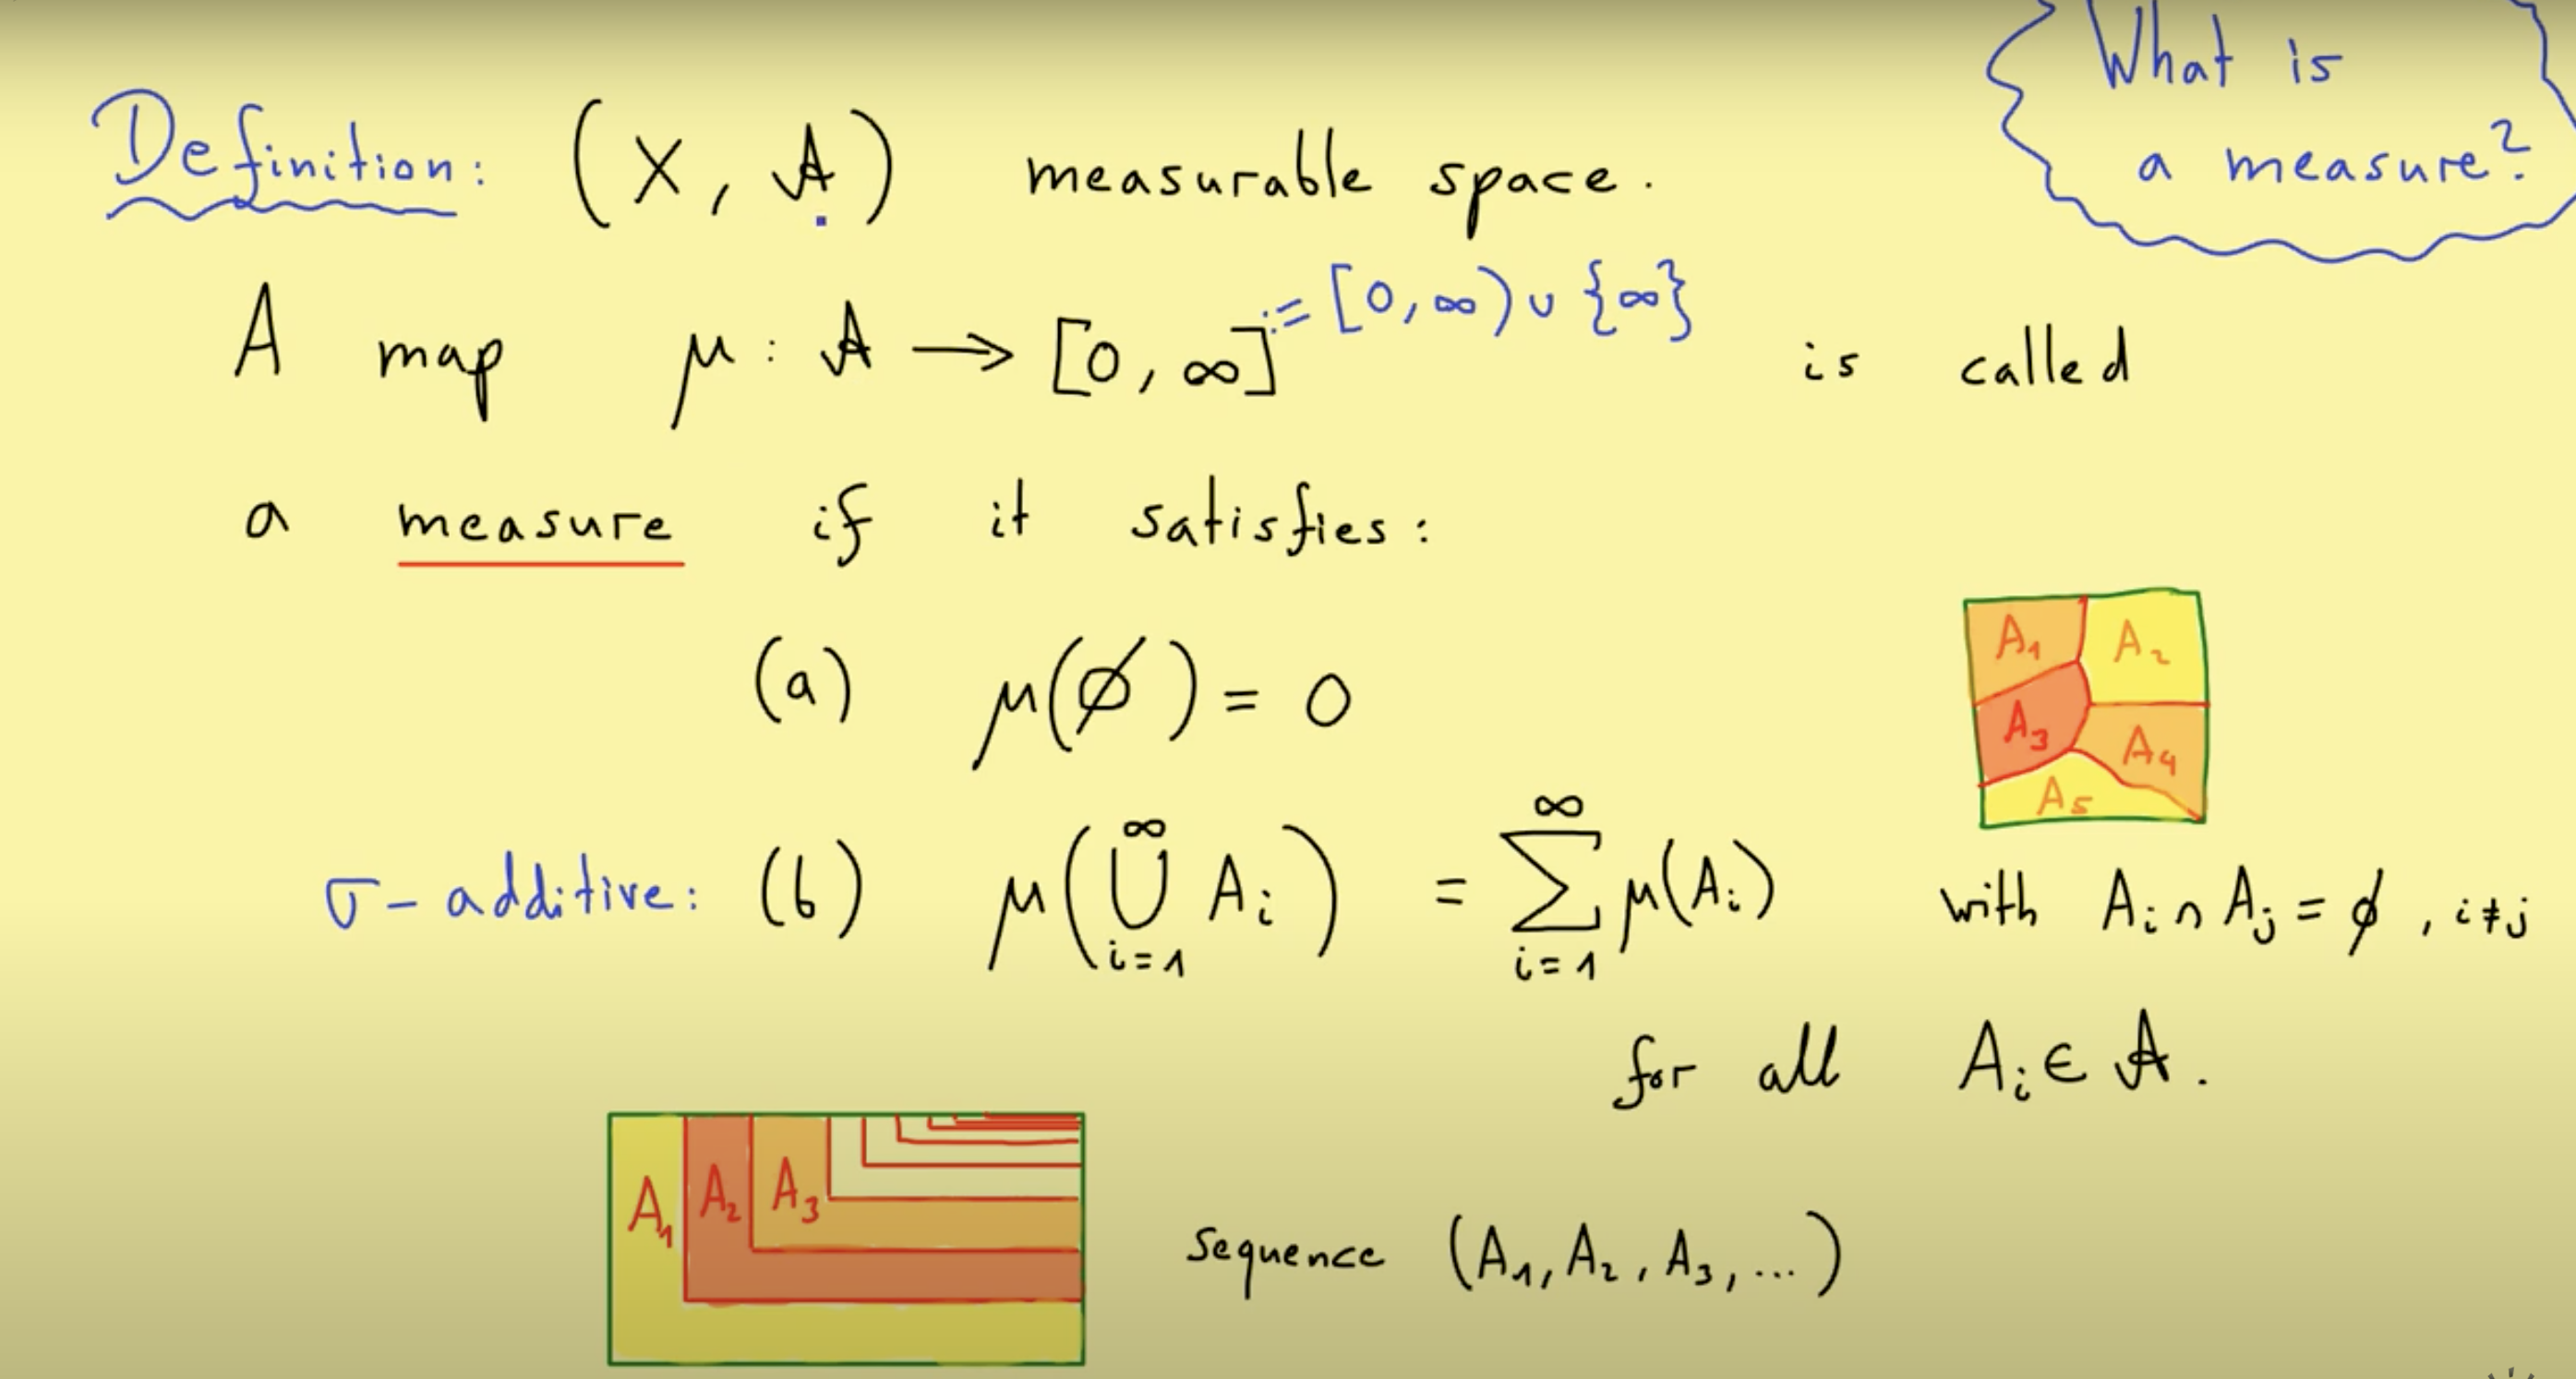 What is
a measure?
Definition: (X, 𝒜) measurable space.
A map μ : 𝒜 → [0, ∞] := [0, ∞) ∪ {∞} is called
a measure if it satisfies:
(a) μ(∅) = 0
A₁ A₂
A₃ A₄
A₅
σ-additive: (b) μ(⋃_{i=1}^{∞} A_i) = ∑_{i=1}^{∞} μ(A_i) with A_i ∩ A_j = ∅, i ≠ j
for all A_i ∈ 𝒜.
A₁ A₂ A₃
Sequence (A₁, A₂, A₃, ...)